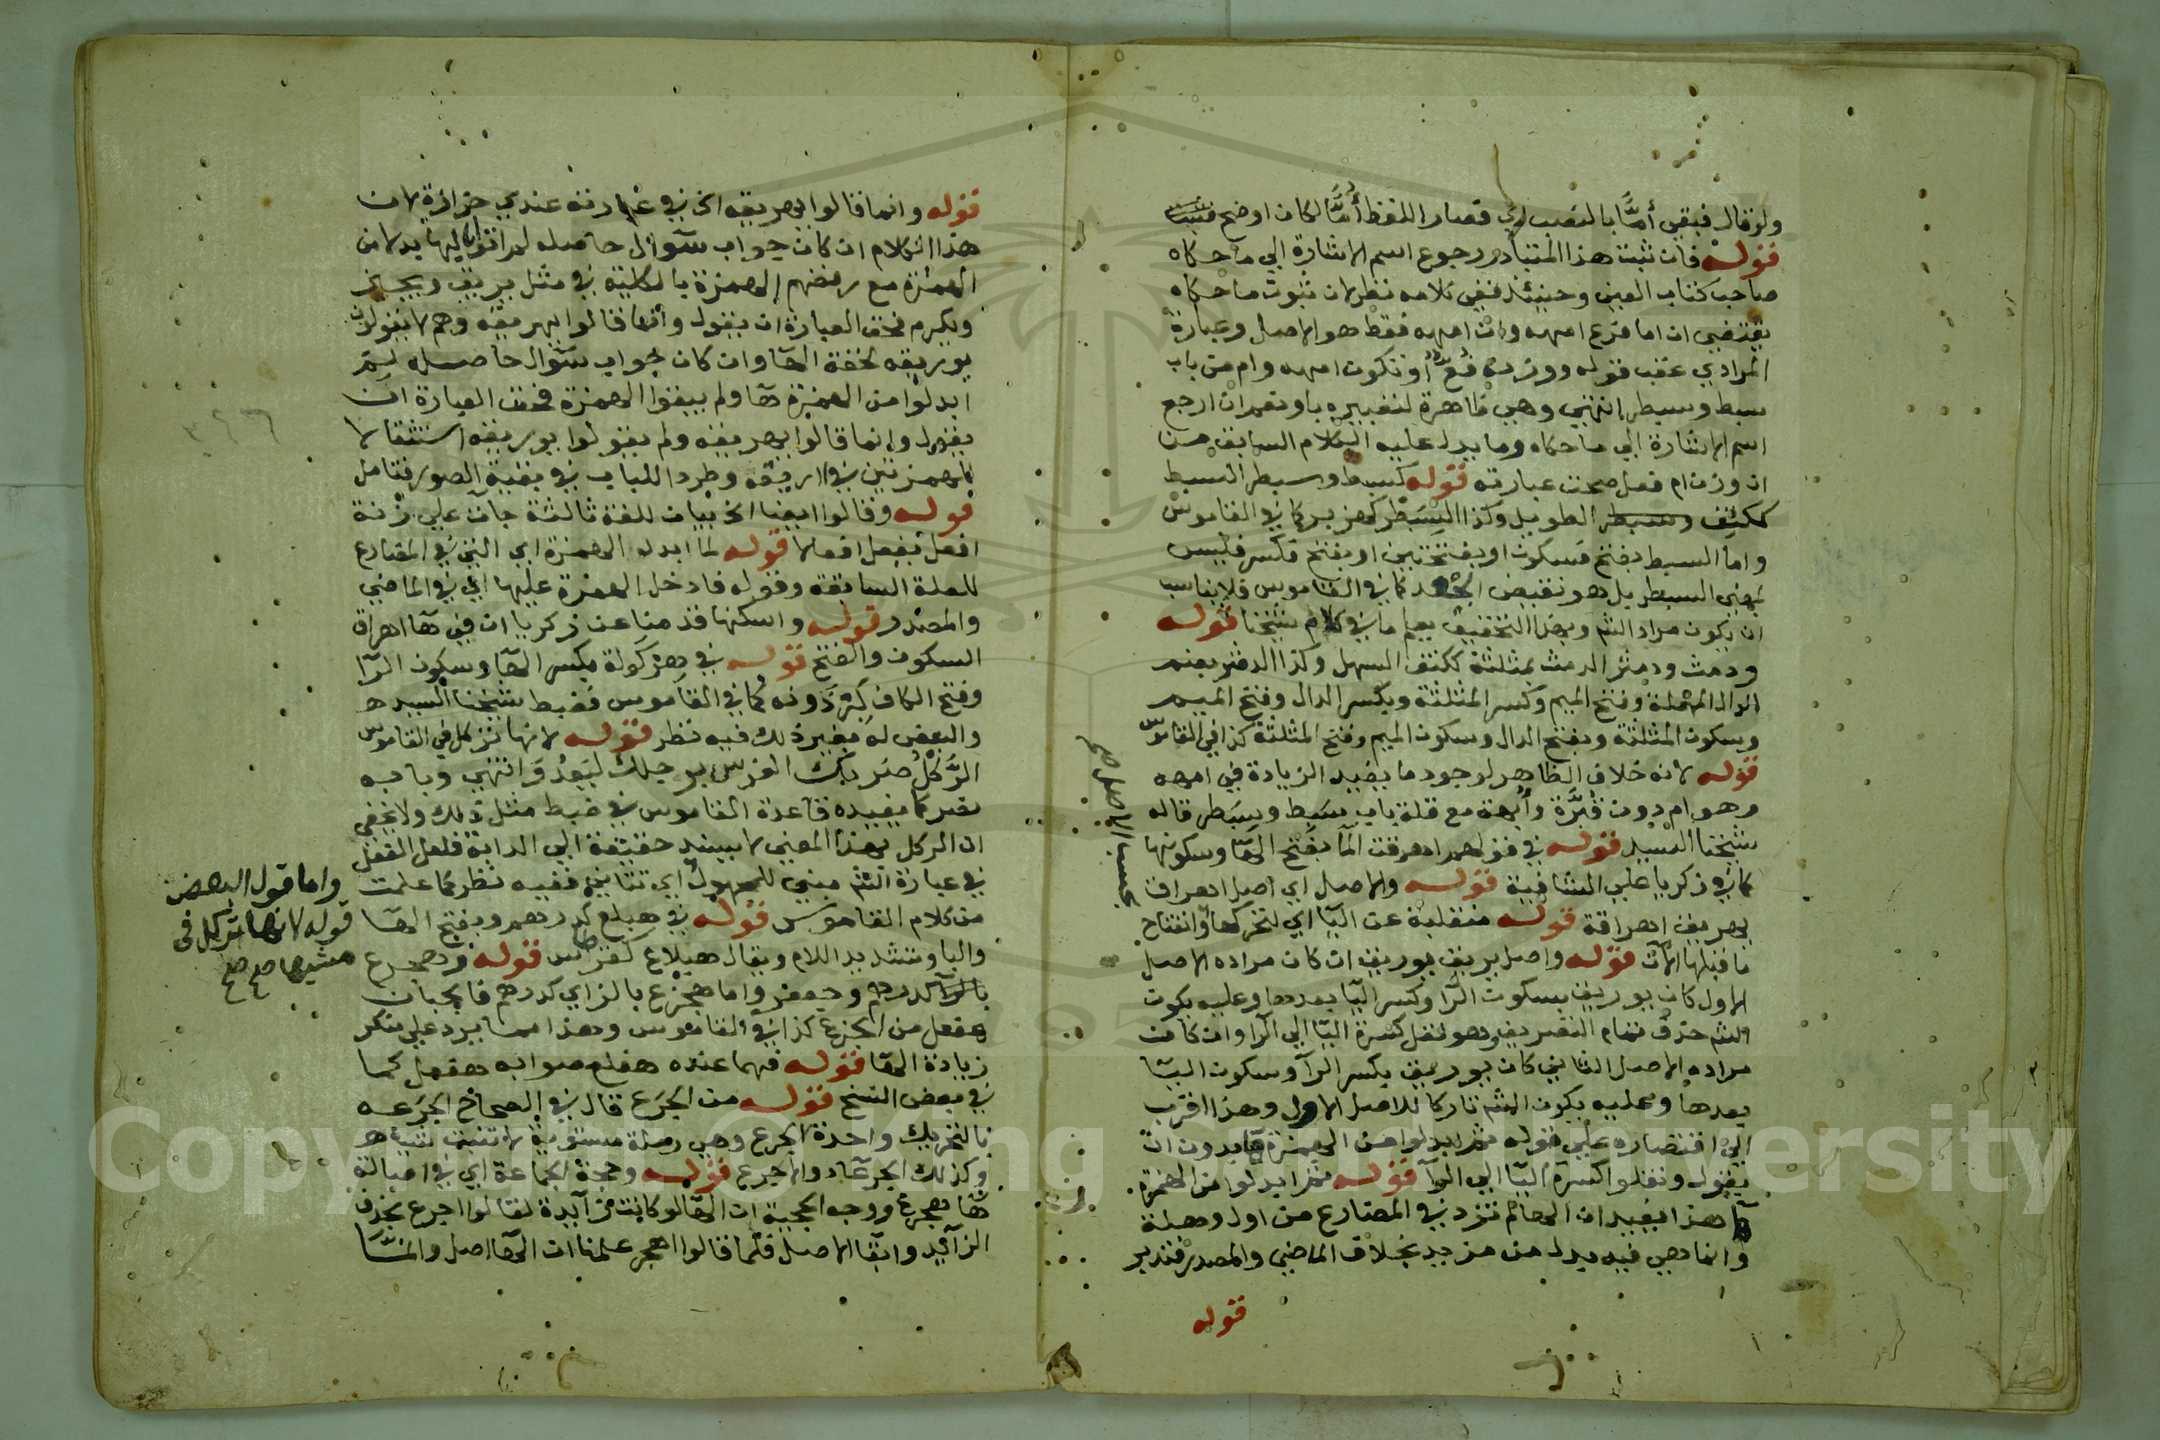 ولو قال فبقي أمًّا بالنصب اي فصار اللفظ أمًّا لكان اوضح
قوله فان ثبت هذا المتبادر رجوع اسم الاشارة الي ما حكاه
صاحب كتاب العين وحينئذ ففي كلامه نظر لان ثبوت ما حكاه
يقتضي ان اما فرع امهه وان امهه فقط هو الاصل وعبارة
المرادي عقب قوله ووزنه فع او تكون امهه وام من باب
سبط وسبطر انتهي وهي ظاهرة لتعبيره باو نعم ان ارجع
اسم الاشارة الي ما حكاه وما يدل عليه الكلام السابق من
ان وزن ام فعل صحت عبارته قوله كسبط وسبطر السبط
ككتف وسبطر الطويل وكذا السبطر كهزبر كما في القاموس
واما السبط بفتح فسكون او بفتحتين او بفتح فكسر فليس
بمعني السبطر بل هو نقيض الجعد كما في القاموس فلا يناسب
ان يكون مراد الشم وبهذا التحقيق يعلم ما في كلام شيخنا قوله
ودمث ودمثر الدمث بمثلثة ككتف السهل وكذا الدمثر بضم
الدال المهملة وفتح الميم وكسر المثلثة وبكسر الدال وفتح الميم
وسكون المثلثة وبفتح الدال وسكون الميم وفتح المثلثة كذا في القاموس
قوله لانه خلاف الظاهر لوجود ما يفيد الزيادة في امهه
وهو ام دون قبرة وأبهة مع قلة باب سبط وسبطر قاله
شيخنا السيد قوله في قولهم اهرقت الما بفتح الها وسكونها
كما في زكريا علي الشافية قوله والاصل اي اصل اهراق
يهريق اهراقة قوله منقلبة عن اليا اي لتحركها وانفتاح
ما قبلها الان قوله واصل يريق يوريق ان كان مراده الاصل
الاول كان يوريق بسكون الرا وكسر اليا بعدها وعليه يكون
الشم حذف تمام التصريف وهو نقل كسرة اليا الي الرا وان كان
مراده الاصل الثاني كان يوريق بكسر الرا وسكون اليا
بعدها وعليه يكون الشم تاركا للاصل الاول وهذا اقرب
الي اقتصاره علي قوله ثم ابدلوا من الهمزة ها بدون ان
يقول ونقلوا كسرة اليا الي الرا قوله ثم ابدلوا من الهمزة
ها هذا يفيد ان الها لم تزد في المضارع من اول وهلة
وانما هي فيه بدل من مزيد بخلاف الماضي والمصدر فتدبر
قوله
بحسب الاصل صح
قوله وانما قالوا يهريقه الخ في عبارته عندي حزازة لان
هذا الكلام ان كان جواب سؤال حاصله لم اتوا اليها بدلا من
الهمزة مع رفضهم الهمزة بالكلية في مثل يريق ويجيز
ويكرم فحق العبارة ان يقول وانما قالوا يهريقه وهم لا يقولون
يوريقه لخفة الها وان كان جواب سؤال حاصله لم
ابدلوا من الهمزة ها ولم يبقوا الهمزة فحق العبارة ان
يقول وانما قالوا يهريقه ولم يقولوا يوريقه استثقالا
للهمزتين في اأريقه وطردا للباب في بقية الصور فتامل
قوله وقالوا ايضا الخ بيان للغة ثالثة جات علي زنة
افعل يفعل افعالا قوله لما ابدله الهمزة اي التي في المضارع
للعلة السابقة وقوله فادخل الهمزة عليها اي في الماضي
والمصدر قوله واسكنها قدمنا عن زكريا ان في ها اهراق
السكون والفتح قوله في هركولة بكسر الها وسكون الرا
وفتح الكاف كبرذونه كما في القاموس فضبط شيخنا السيد
والبعض له بغير ذلك فيه نظر قوله لانها تركل في القاموس
الرَّكْلُ ضربك الفرس برجلك ليعدُوَ انتهي وبابه
نصر كما يفيده قاعدة القاموس في ضبط مثل ذلك ولا يخفي
ان الركل بهذا المعني لا يسند حقيقة الي الدابة فلعل الفعل
في عبارة الشم مبني للمجهول اي تتاني ففيه نظر كما علمت
من كلام القاموس قوله في هبلع كدرهم وبفتح الها
والبا وتشديد اللام ويقال هبلاع كقرطاس قوله وهجرع
بالرا كدرهم وجعفر واما هجزع بالزاي كدرهم فالجبان
هفعل من الجزع كذا في القاموس وهذا مما يرد علي منكر
زيادة الها قوله فهما عنده هفلع صوابه هفعل كما
في بعض النسخ قوله من الجرَع قال في الصحاح الجرَعه
بالتحريك واحدة الجرع وهي رملة مستوية لا تنبت شيا
وكذلك الجرعا والاجرع قوله وحجة الجماعة اي في اصالة
ها هجرع ووجه الحجية ان الها لو كانت زايدة لقالوا اجرع بحذف
الزايد وابقا الاصل فلما قالوا اهجر علمنا ان الها اصل والمنـ
واما قول البعض
قوله لانها تركل في
مشيها صح صح